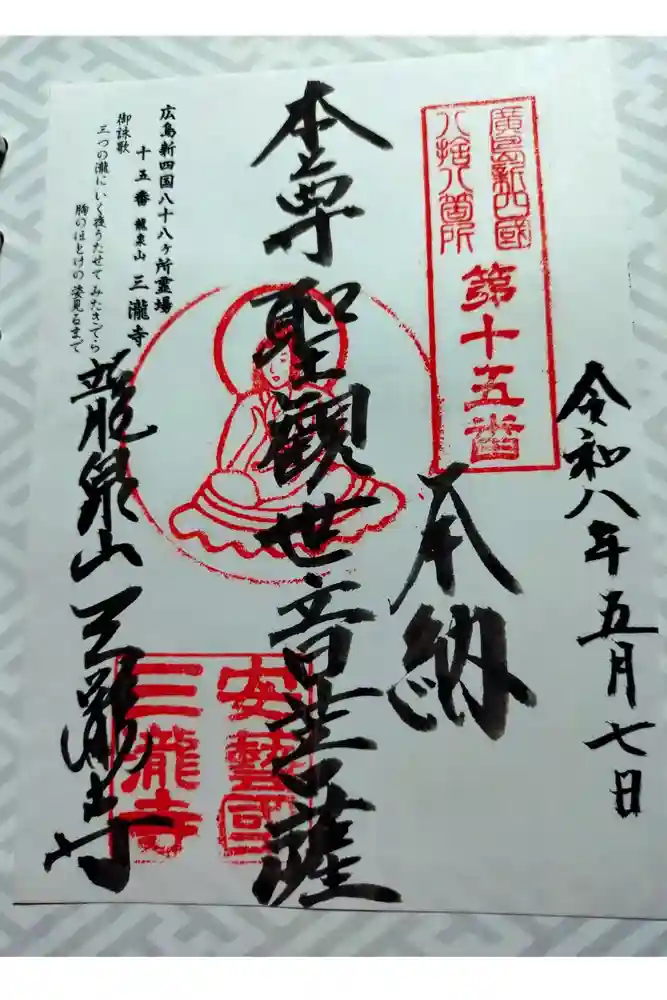 令和八年五月七日
廣島新四國
八拾八箇所
第十五番
奉納
本尊 聖觀世音菩薩
広島新四国八十八ヶ所霊場
十五番 龍泉山 三瀧寺
御詠歌
三つの瀧にいく度うたせてみたきでら
胸のほとけの姿見るまで
龍泉山 三瀧寺
安藝國
三瀧寺